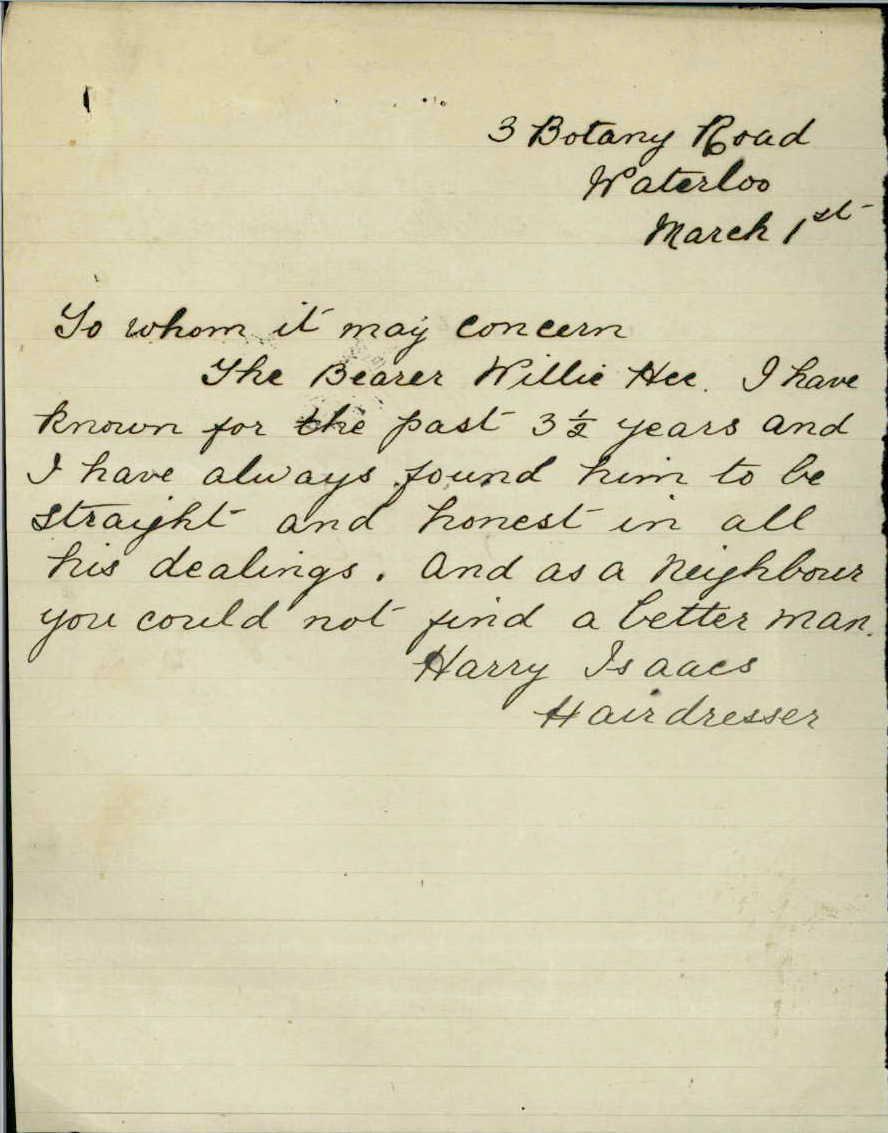 3 Botany Road
Waterloo
March 1st
To whom it may concern
The Bearer Willie Hee. I have
known for the past 3 ½ years and
I have always found him to be
straight and honest in all
his dealings. And as a neighbour
you could not find a better man.
Harry Isaacs
Hairdresser